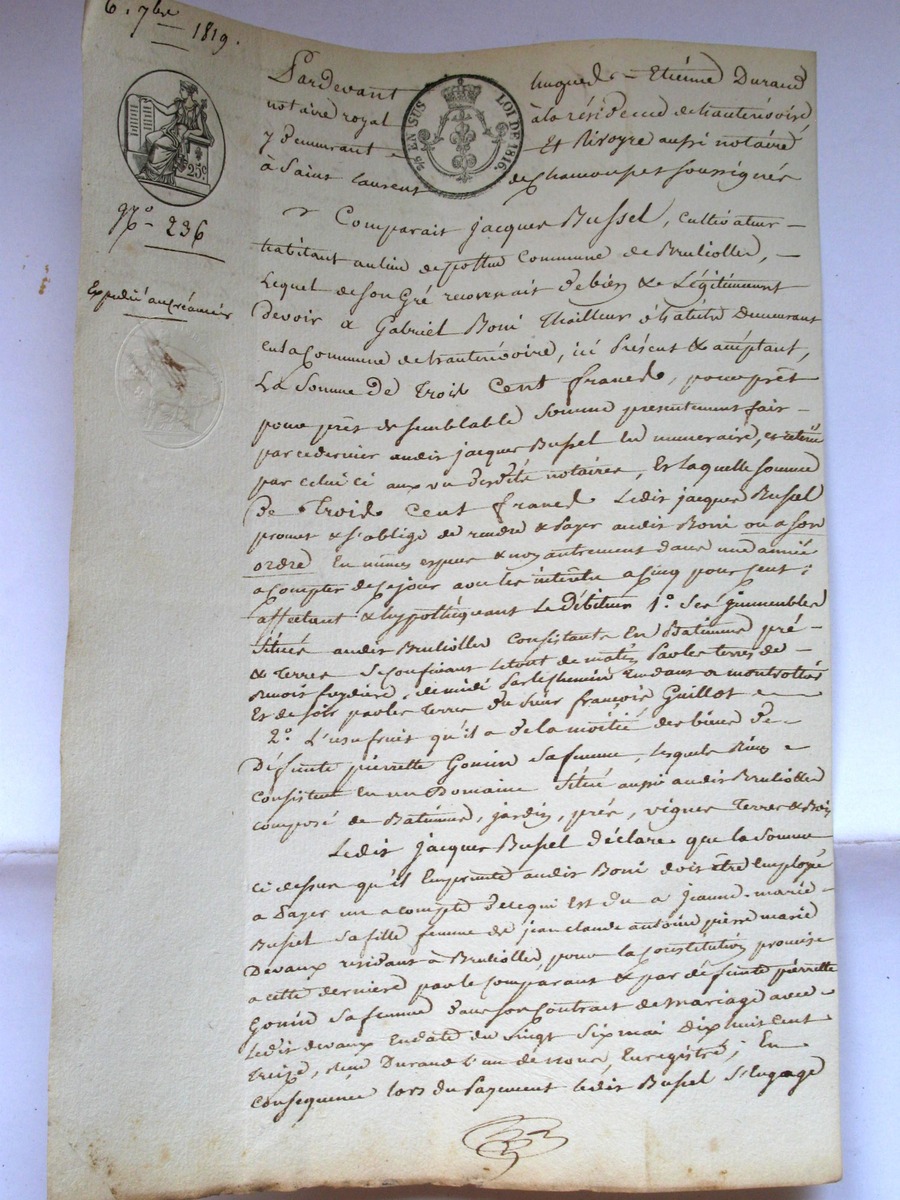 6. 7bre 1819.
Pardevant hugues - Etienne Durand
notaire royal à la résidence de hauterivoire
y demeurant Et Rivoyre aussi notaire
à Saint laurent de Chamousset soussignés
EN SUS
LOI DE 1816.
25c.
No. 236
Expédié au créancier
Comparait jacques Bussel, cultivateur
habitant au lieu de commune de Brulioller,
Lequel de son Gré reconnait de bien & Légitimement
devoir a Gabriel Boni thailleur d'habits demeurant
en la Commune de hauterivoire, ici présent & acceptant,
La Somme De Trois Cent francs, pour prêt
pour prêt de semblable Somme présentement fait
par ce dernier audit jacques Bussel en numeraire, et retiré
par celui ci aux vu desdits notaires, Et laquelle somme
De Trois Cent francs Ledit jacques Bussel
promet & s'oblige de rendre & payer audit Boni ou a son
ordre En mêmes especes & non autrement dans une année
a compter de ce jour avec les intérêts a cinq pour cent;
affectant & hypothéquant Le Débiteur 1º. Ses immeubles
Situés audit Brulioller Consistants En Batiments pré
& Terres Se Confinant le tout de matin par les terres de
Benoit de midi par le chemin tendant a
Et de soir par les Terres du sieur françois Guillot
2º. L'usufruit qu'il a de la moitié des biens de
Défunte pierrette Gonin Sa femme, lesquels Biens
consistent En un Domaine Situé aussi audit Brulioller
composé de Batiments, jardin, prés, vignes Terres & Bois
Ledit jacques Bussel déclare que la Somme
ci dessus qu'il Emprunte audit Boni doit être Employé
a Payer un acompte de ce qui Est Du a jeanne-marie
Bussel Sa fille femme de jean claude antoine pierre marie
Devaux résidant à Brulioller, pour la Constitution promise
a cette derniere par le comparant & par défunte pierrette
Gonin Sa femme dans son Contrat de mariage avec
Ledit devaux En date du vingt Six mai dix huit cent
treize, reçu Durand l'un de nous Enregistré; En
conséquence lors du Payement ledit Bussel S'engage